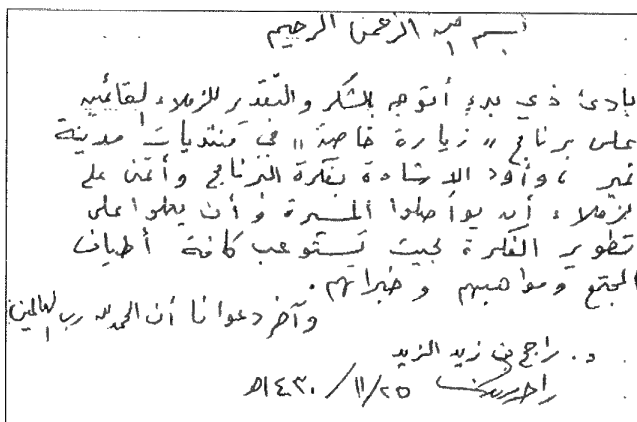 بسم الله الرحمن الرحيم
بادئ ذي بدء أتوجه بالشكر والتقدير للزملاء القائمين
على برنامج "زيارة خاصة" في منتديات مدينة
تمير ، وأود الاشادة بفكرة البرنامج وأتمنى على
الزملاء أن يواصلوا المسيرة وأن يعملوا على
تطوير الفكرة بحيث تستوعب كافة أطياف
المجتمع ومواهبهم وخبراتهم .
وآخر دعوانا أن الحمد لله رب العالمين
د. راجح بن زيد الزيد
١٤٣٠/١١/٢٥هـ